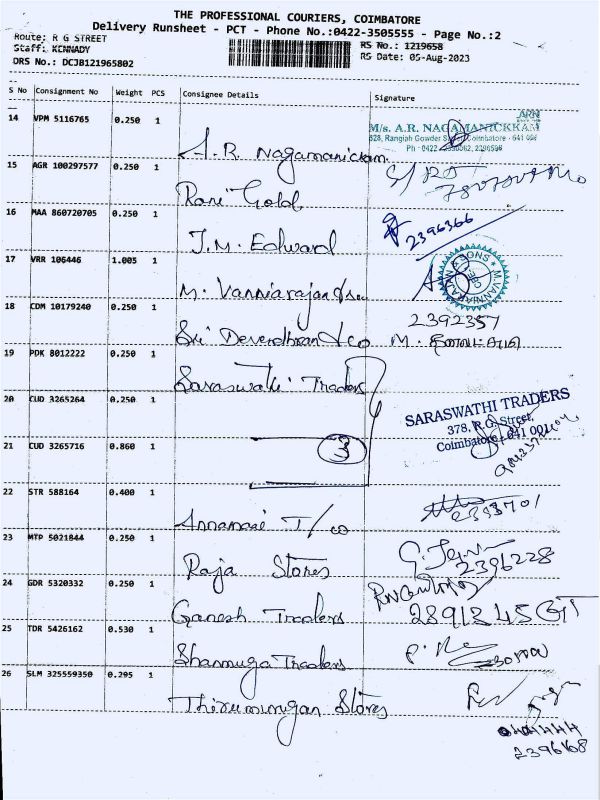 THE PROFESSIONAL COURIERS, COIMBATORE
Delivery Runsheet - PCT - Phone No.:0422-3505555 - Page No.:2
Route: R G STREET
RS No.: 1219658
Staff: KENNADY
RS Date: 05-Aug-2023
DRS No.: DCJB121965802
S No Consignment No Weight PCS Consignee Details Signature
14 VPM 5116765 0.250 1 A. R. Nagamanickam
M/s. A.R. NAGAMANICKKAM
328, Rangiah Gowder Street Coimbatore - 641 001
15 AGR 100297577 0.250 1 Rani Gold
16 MAA 860720705 0.250 1 J.M. Edward 2396366
17 VRR 106446 1.005 1 M. Vanniarajan & Sons
M. VANNIARAJAN & SONS
2392357
18 CDM 10179240 0.250 1 Sri Devendhran & co M.
19 PDK 8012222 0.250 1 Saraswathi Traders
20 CUD 3265264 0.250 1
SARASWATHI TRADERS
378, R.G. Street,
Coimbatore - 641 001
21 CUD 3265716 0.860 1 3
22 STR 588164 0.400 1 Annamalai T/co 2393701
23 MTP 5021844 0.250 1 Raja Stores 2396228
24 GDR 5320332 0.250 1 Ganesh Traders
25 TDR 5426162 0.530 1 Shanmuga Traders
26 SLM 325559350 0.295 1 Thirumurugan Stores
2396168